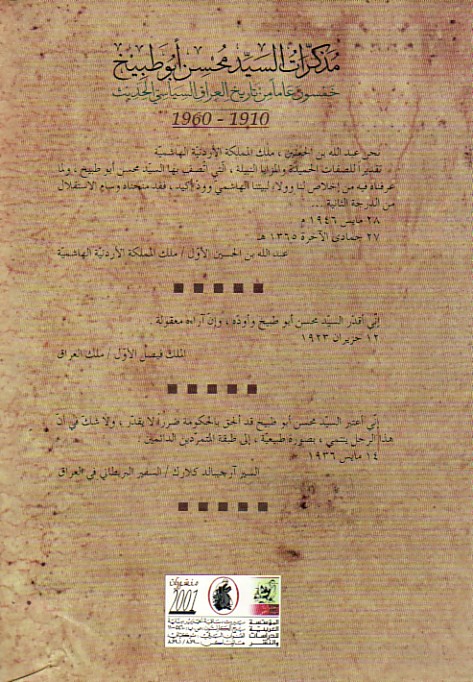 مذكرات السيد محسن أبو طبيخ
خمسون عاماً من تاريخ العراق السياسي الحديث
1960 - 1910
نحن عبد الله بن الحسين ، ملك المملكة الأردنية الهاشمية
تقديراً للصفات الحميدة والمزايا النبيلة ، التي اتصف بها السيد محسن أبو طبيخ ، ولما
عرفناه فيه من إخلاص لنا وولاء لبيتنا الهاشمي وود أكيد ، فقد منحناه وسام الاستقلال
من الدرجة الثانية...
٢٨ مايس ١٩٤٦ م
٢٧ جمادى الآخرة ١٣٦٥ هـ
عبد الله بن الحسين الأوّل / ملك المملكة الأردنيّة الهاشميّة
إنّي أقدّر السيّد محسن أبو طبيخ وأودّه ، وإنّ آراءه معقولة .
١٢ حزيران ١٩٢٣
الملك فيصل الأوّل / ملك العراق
إنّي أعتبر السيّد محسن أبو طبيخ قد ألحق بالحكومة ضرراً لا يقدّر ، ولا شكّ في أنّ
هذا الرجل ينتمي ، بصورة طبيعيّة ، إلى طبقة المتمرّدين الدائمين .
١٤ مايس ١٩٣٦
السير آرجيبالد كلارك / السفير البريطاني في العراق
منشورات
2001
المؤسسة
العربية
للدراسات
والنشر